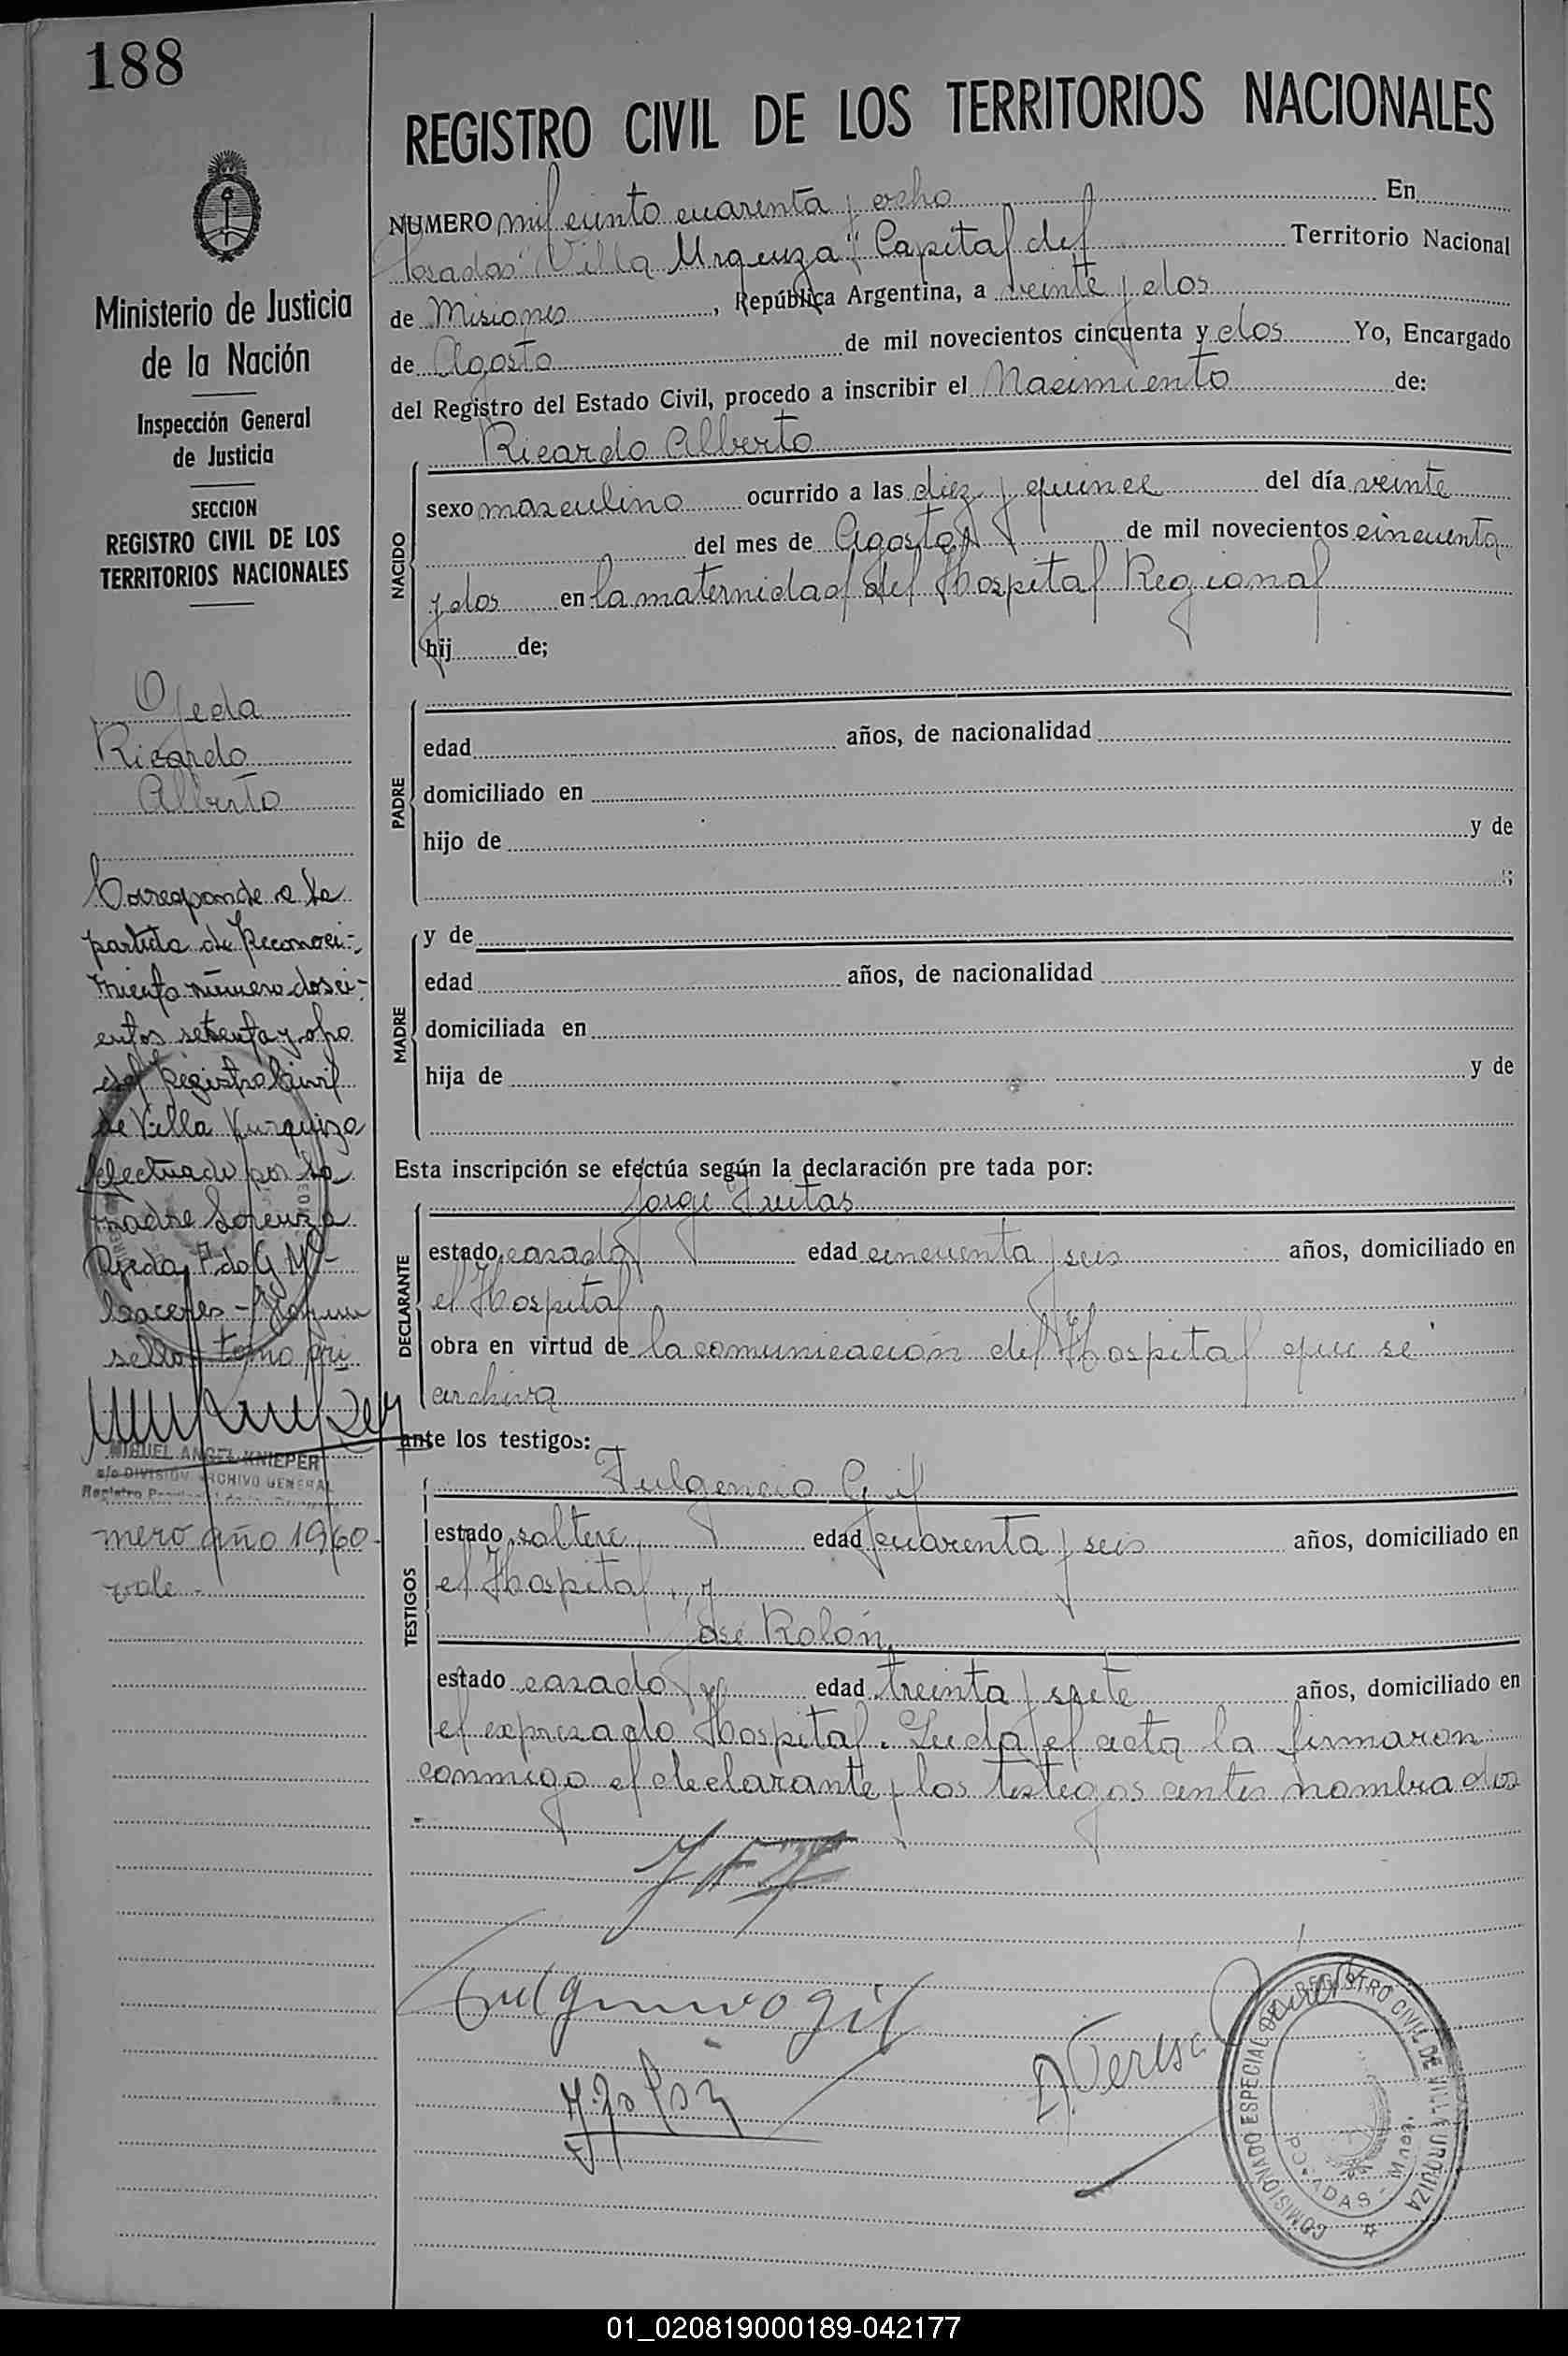 188
REGISTRO CIVIL DE LOS TERRITORIOS NACIONALES
NUMERO mil ciento cuarenta y ocho En
Posadas "Villa Urquiza" Capital del Territorio Nacional
de Misiones, República Argentina, a veinte y dos
de Agosto de mil novecientos cincuenta y dos Yo, Encargado
del Registro del Estado Civil, procedo a inscribir el Nacimiento de:
Ricardo Alberto
NACIDO
sexo masculino ocurrido a las diez y quince del día veinte
del mes de Agosto de mil novecientos cincuenta
y dos en la maternidad del Hospital Regional
hij de;
PADRE
edad años, de nacionalidad
domiciliado en
hijo de y de
;
MADRE
y de
edad años, de nacionalidad
domiciliada en
hija de y de
Esta inscripción se efectúa según la declaración pre tada por:
Jorge Freitas
DECLARANTE
estado casado edad cincuenta y seis años, domiciliado en
el Hospital
obra en virtud de la comunicación del Hospital que se
archiva
ante los testigos:
Fulgencio Gil
TESTIGOS
estado soltero edad cuarenta y seis años, domiciliado en
el Hospital, y
José Rolón
estado casado edad treinta y siete años, domiciliado en
el expresado Hospital. Leida el acta la firmaron
conmigo el declarante y los testigos antes nombrados
Fulgencio Gil
COMISIONADO ESPECIAL DEL REGISTRO CIVIL DE VILLA URQUIZA
POSADAS - Mnes.
Ministerio de Justicia
de la Nación
Inspección General
de Justicia
SECCION
REGISTRO CIVIL DE LOS
TERRITORIOS NACIONALES
Ojeda
Ricardo
Alberto
Corresponde a la
partida de Reconoci-
miento número dosci-
entos setenta y ocho
del Registro Civil
de Villa Urquiza
efectuado por la
madre Lorenza
Ojeda, Fdo G. M.
Caceres - Hay un
sello tomo pri
MIGUEL ANGEL KNIEPER
a/c DIVISION ARCHIVO GENERAL
mero año 1960 -
vale -
01_020819000189-042177